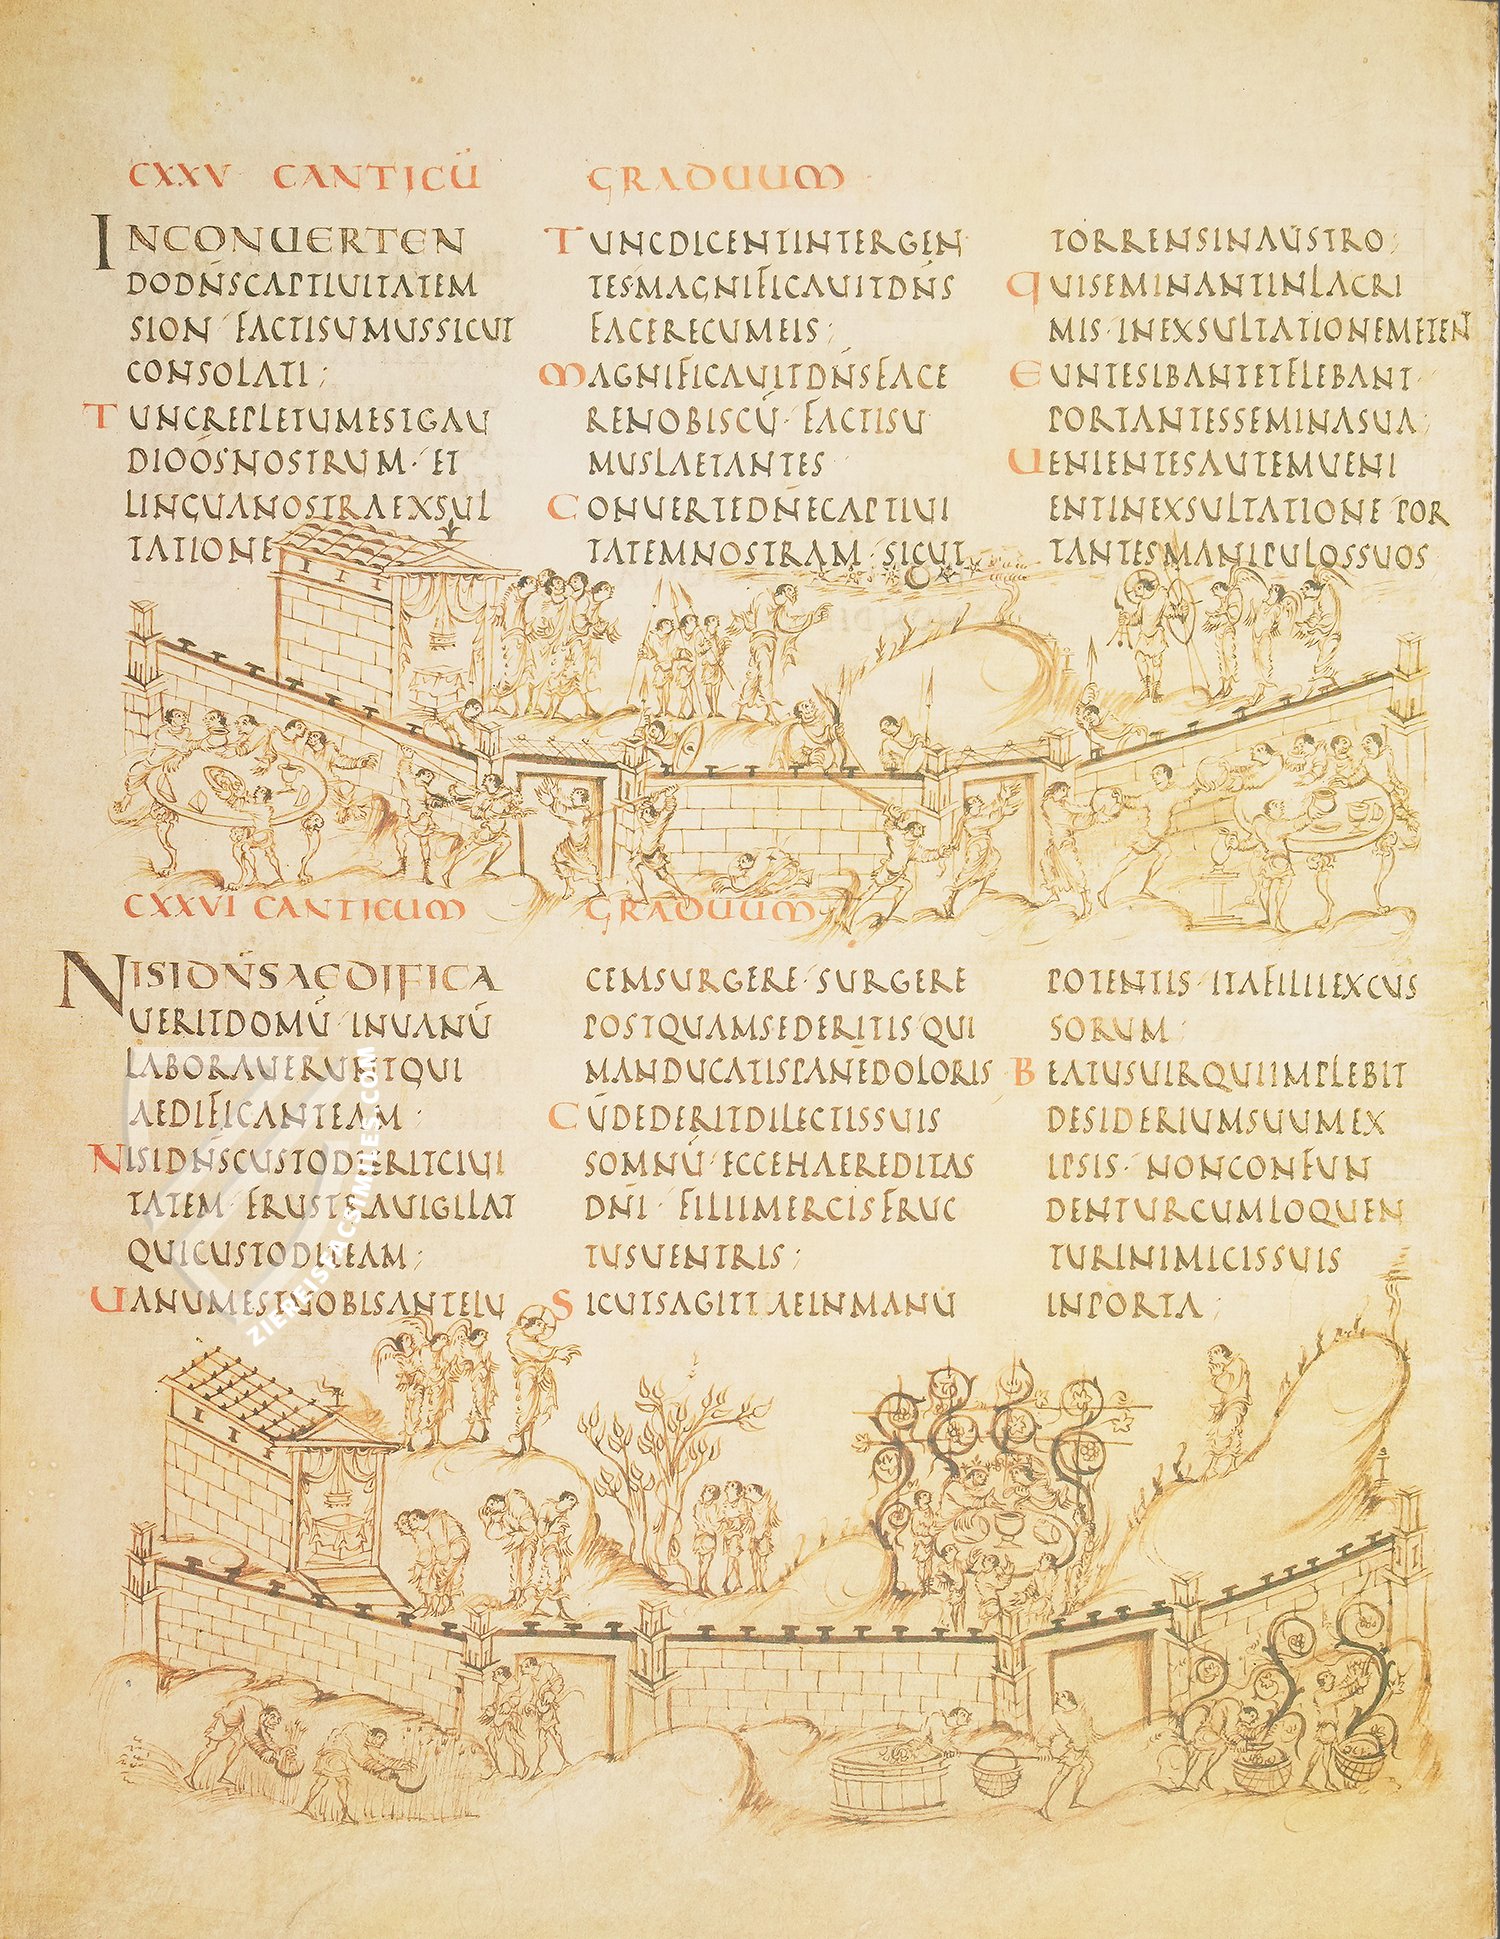 CXXV CANTICŪ GRADUUM
INCONUERTEN
DODN̄SCAPTIUITATEM
SION · FACTISUMUSSICUT
CONSOLATI;
TUNCREPLETUMESTGAU
DIOOSNOSTRUM · ET
LINGUANOSTRAEXSUL
TATIONE
TUNCDICENTINTERGEN
TES·MAGNIFICAUITDN̄S
FACERECUMEIS;
MAGNIFICAUITDN̄SFACE
RENOBISCŪ · FACTISU
MUSLAETANTES
CONUERTEDN̄ECAPTIUI
TATEMNOSTRAM · SICUT
TORRENSINAUSTRO;
QUISEMINANTINLACRI
MIS · INEXSULTATIONEMETEN
EUNTESIBANTETFLEBANT ·
PORTANTESSEMINASUA;
UENIENTESAUTEMUENI
ENTINEXSULTATIONE · POR
TANTESMANIPULOSSUOS
CXXVI CANTICUM GRADUUM
NISIDN̄SAEDIFICA
UERITDOMŪ · INUANŪ
LABORAUERUNTQUI
AEDIFICANTEAM;
NISIDN̄SCUSTODIERITCIUI
TATEM · FRUSTRAUIGILAT
QUICUSTODITEAM;
UANUMESTUOBISANTELU
CEMSURGERE · SURGERE
POSTQUAMSEDERITIS · QUI
MANDUCATISPANĒDOLORIS
CŪDEDERITDILECTISSUIS
SOMNŪ · ECCEHAEREDITAS
DN̄I · FILIIMERCISFRUC
TUSUENTRIS;
SICUTSAGITTAEINMANŪ
POTENTIS · ITAFILIIEXCUS
SORUM;
BEATUSUIRQUIIMPLEBIT
DESIDERIUMSUUMEX
IPSIS · NONCONFUN
DENTURCUMLOQUEN
TURINIMICISSUIS
INPORTA;
ZIEREISFACSIMILES.COM